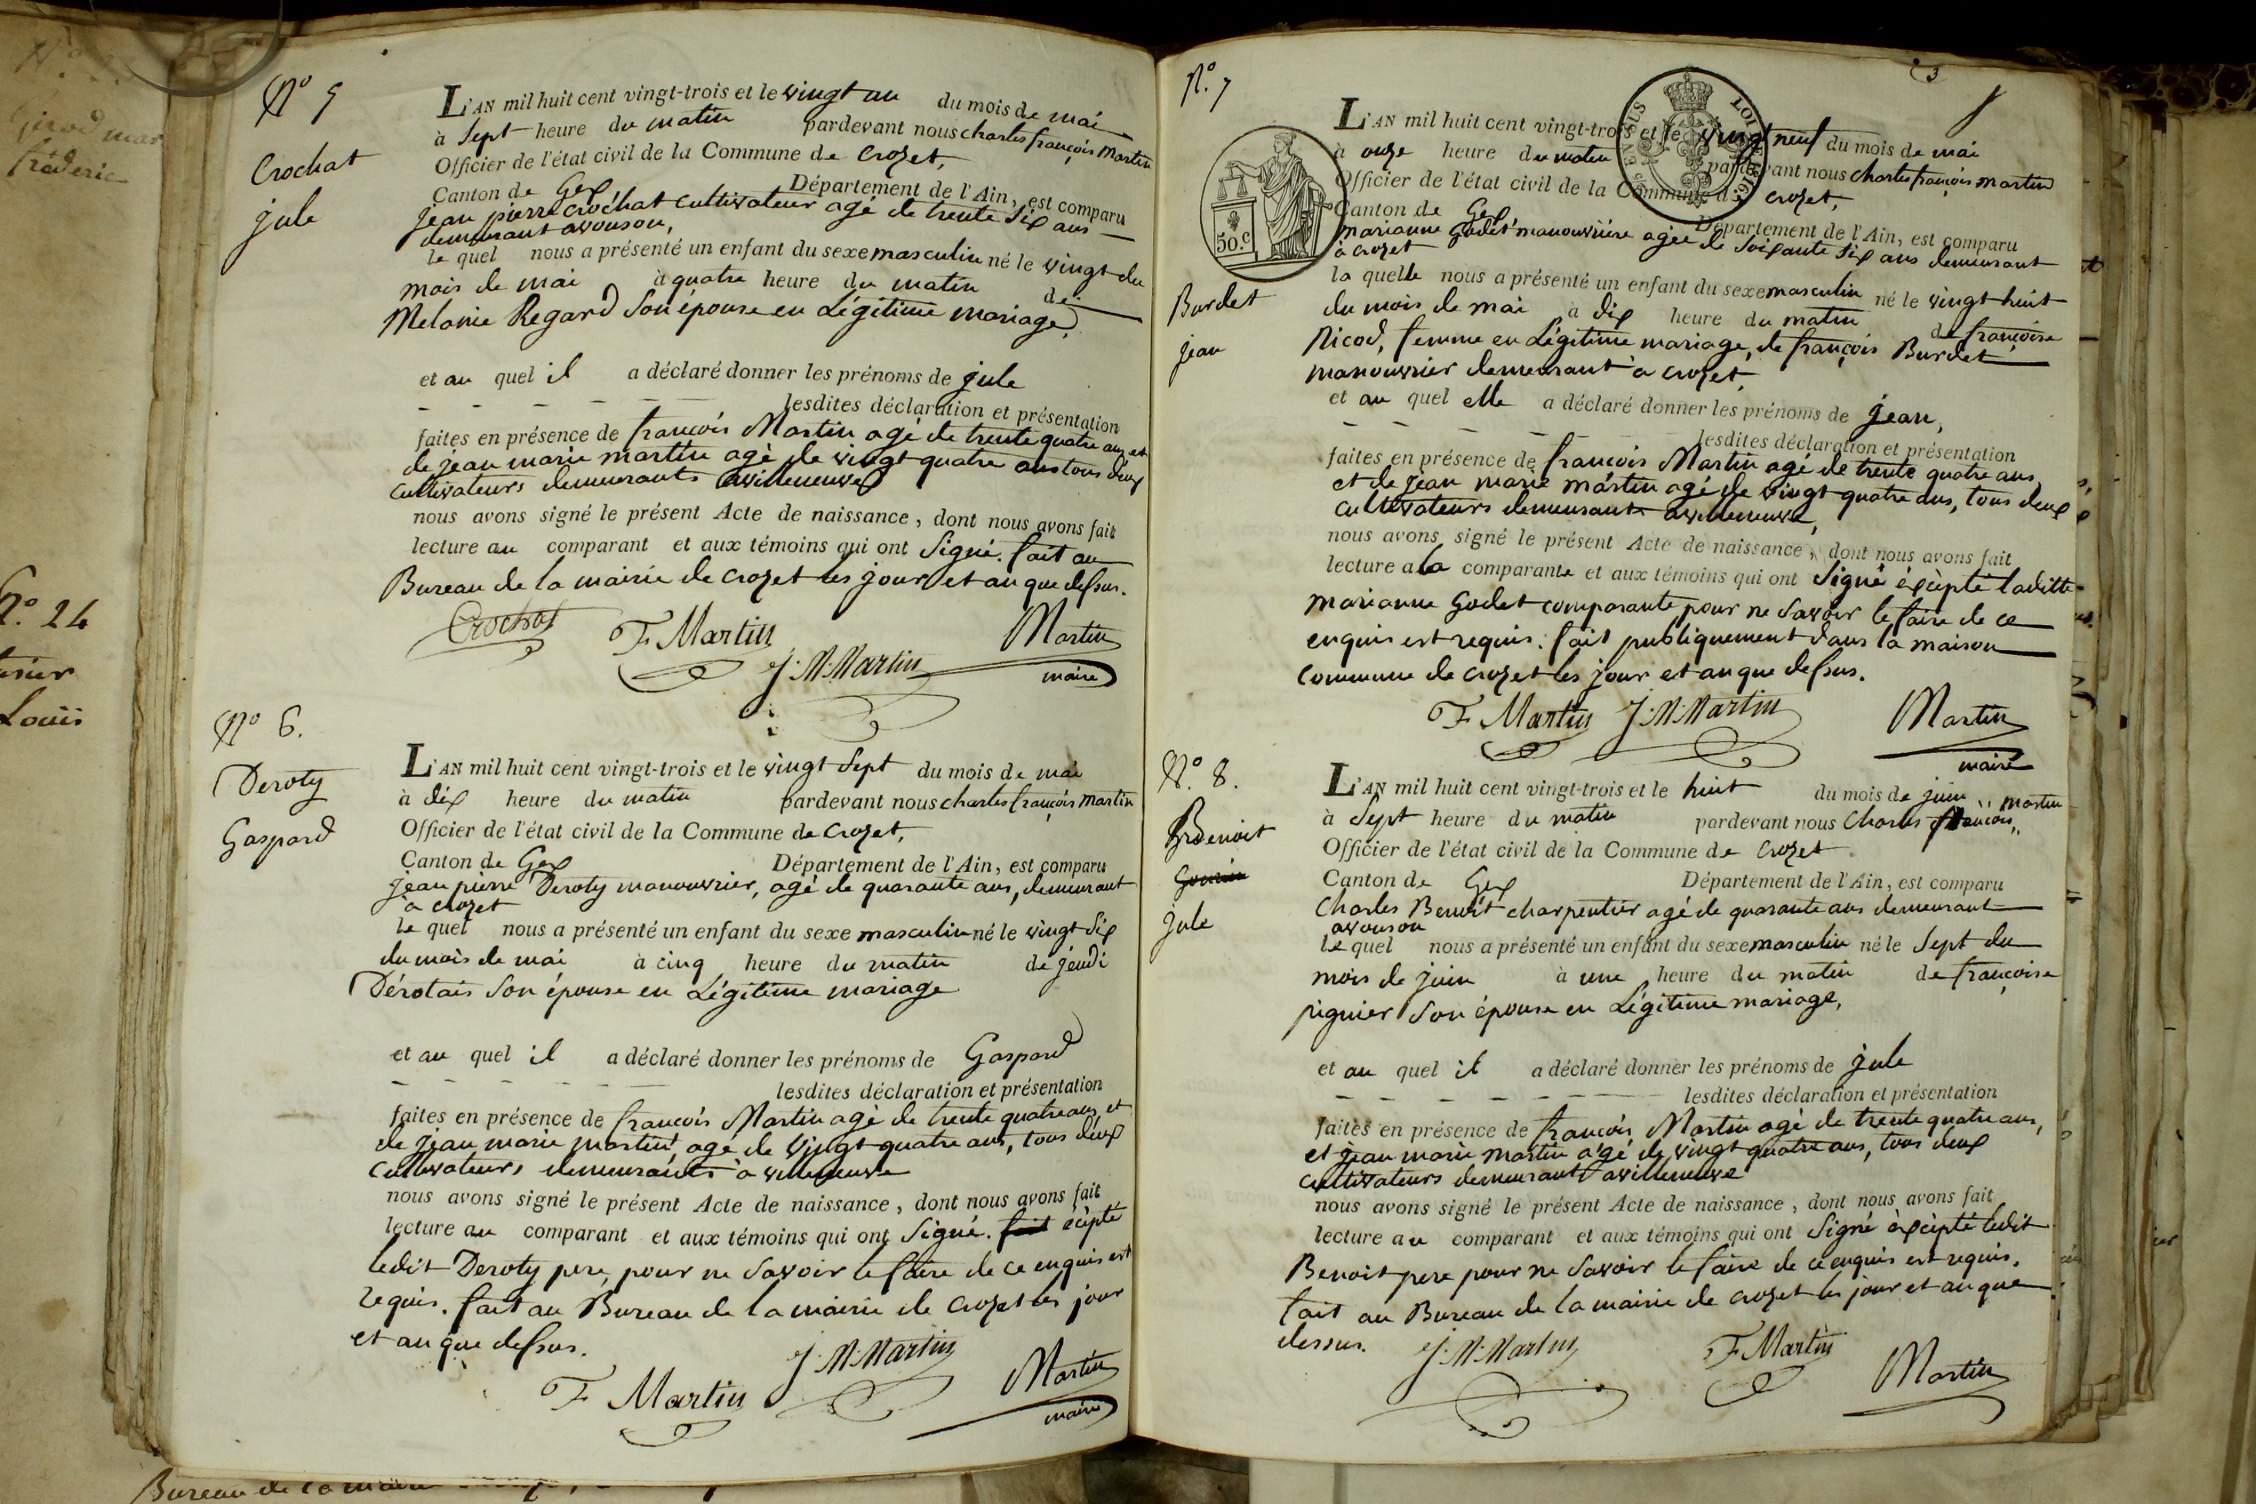 Nº 5
Crochat
jule
L'AN mil huit cent vingt-trois et le vingt un du mois de mai
à Sept heure du matin pardevant nous charles françois Martin
Officier de l'état civil de la Commune de Crozet,
Canton de Gex Département de l'Ain, est comparu
jean pierre Crochat Cultivateur agé de trente Six ans
demeurant avouson,
le quel nous a présenté un enfant du sexe masculin né le vingt du
mois de mai à quatre heure du matin de
Melanie Regard Son épouse en Légitime mariage,
et au quel il a déclaré donner les prénoms de jule
lesdites déclaration et présentation
faites en présence de françois Martin agé de trente quatre ans et
de jean marie martin agé de vingt quatre ans tous deux
Cultivateurs demeurants avilleneuve
nous avons signé le présent Acte de naissance, dont nous avons fait
lecture au comparant et aux témoins qui ont Signé. fait au
Bureau de la mairie de Crozet les jour et an que dessus.
Crochat
F Martin
J. M. Martin
Martin
maire
Nº 6.
Deroty
Gaspard
L'AN mil huit cent vingt-trois et le vingt Sept du mois de mai
à dix heure du matin pardevant nous charles françois Martin
Officier de l'état civil de la Commune de Crozet,
Canton de Gex Département de l'Ain, est comparu
jean pierre Deroty manouvrier, agé de quarante ans, demeurant
à Crozet
le quel nous a présenté un enfant du sexe masculin né le vingt Six
du mois de mai à cinq heure du matin de jeudi
Dérotais Son épouse en Légitime mariage
et au quel il a déclaré donner les prénoms de Gaspard
lesdites déclaration et présentation
faites en présence de françois Martin agé de trente quatre ans, et
de jean marie martin, agé de vingt quatre ans, tous deux
Cultivateurs demeurants à villeneuve
nous avons signé le présent Acte de naissance, dont nous avons fait
lecture au comparant et aux témoins qui ont Signé. fait écipté
ledit Deroty pere, pour ne Savoir le faire de ce enquis est
requis. fait au Bureau de la mairie de Crozet les jour
et an que dessus.
F Martin
J. M. Martin
Martin
maire
3
Nº. 7
Burdet
jean
50.C
LOI DE 1816.
L'AN mil huit cent vingt-trois et le vingt neuf du mois de mai
à onze heure du matin pardevant nous charles françois martin
Officier de l'état civil de la Commune de Crozet,
Canton de Gex Département de l'Ain, est comparu
marianne Godet manouvrière agée de Soixante Six ans demeurant
à Crozet
la quelle nous a présenté un enfant du sexe masculin né le vingt huit
du mois de mai à dix heure du matin de françoise
Nicod, femme en Légitime mariage, de françois Burdet
manouvrier demeurant à Crozet,
et au quel elle a déclaré donner les prénoms de jean,
lesdites déclaration et présentation
faites en présence de françois Martin agé de trente quatre ans
et de jean marie martin agé de vingt quatre ans, tous deux
cultivateurs demeurants avilleneuve,
nous avons signé le présent Acte de naissance, dont nous avons fait
lecture a la comparante et aux témoins qui ont Signé éxcèpté laditte
marianne Godet comparante pour ne Savoir le faire de ce
enquis est requis. fait publiquement dans la maison
Commune de Crozet les jour et an que dessus.
F Martin
J. M. Martin
Martin
maire
Nº. 8.
Benoit
jule
L'AN mil huit cent vingt-trois et le huit du mois de juin
à Sept heure du matin pardevant nous Charles françois martin
Officier de l'état civil de la Commune de Crozet
Canton de Gex Département de l'Ain, est comparu
Charles Benoit charpentier agé de quarante ans demeurant
avouson
le quel nous a présenté un enfant du sexe masculin né le Sept du
mois de juin à une heure du matin de françoise
pignier Son épouse en Légitime mariage,
et au quel il a déclaré donner les prénoms de jule
lesdites déclaration et présentation
faites en présence de françois Martin agé de trente quatre ans,
et jean marie martin agé de vingt quatre ans, tous deux
cultivateurs demeurant avilleneuve
nous avons signé le présent Acte de naissance, dont nous avons fait
lecture au comparant et aux témoins qui ont Signé éxcèpté ledit
Benoit pere pour ne Savoir le faire de ce enquis est requis.
fait au Bureau de la mairie de Crozet les jour et an que
dessus.
J. M. Martin
F Martin
Martin
Nº. 24
Louis
Bureau de la mairie